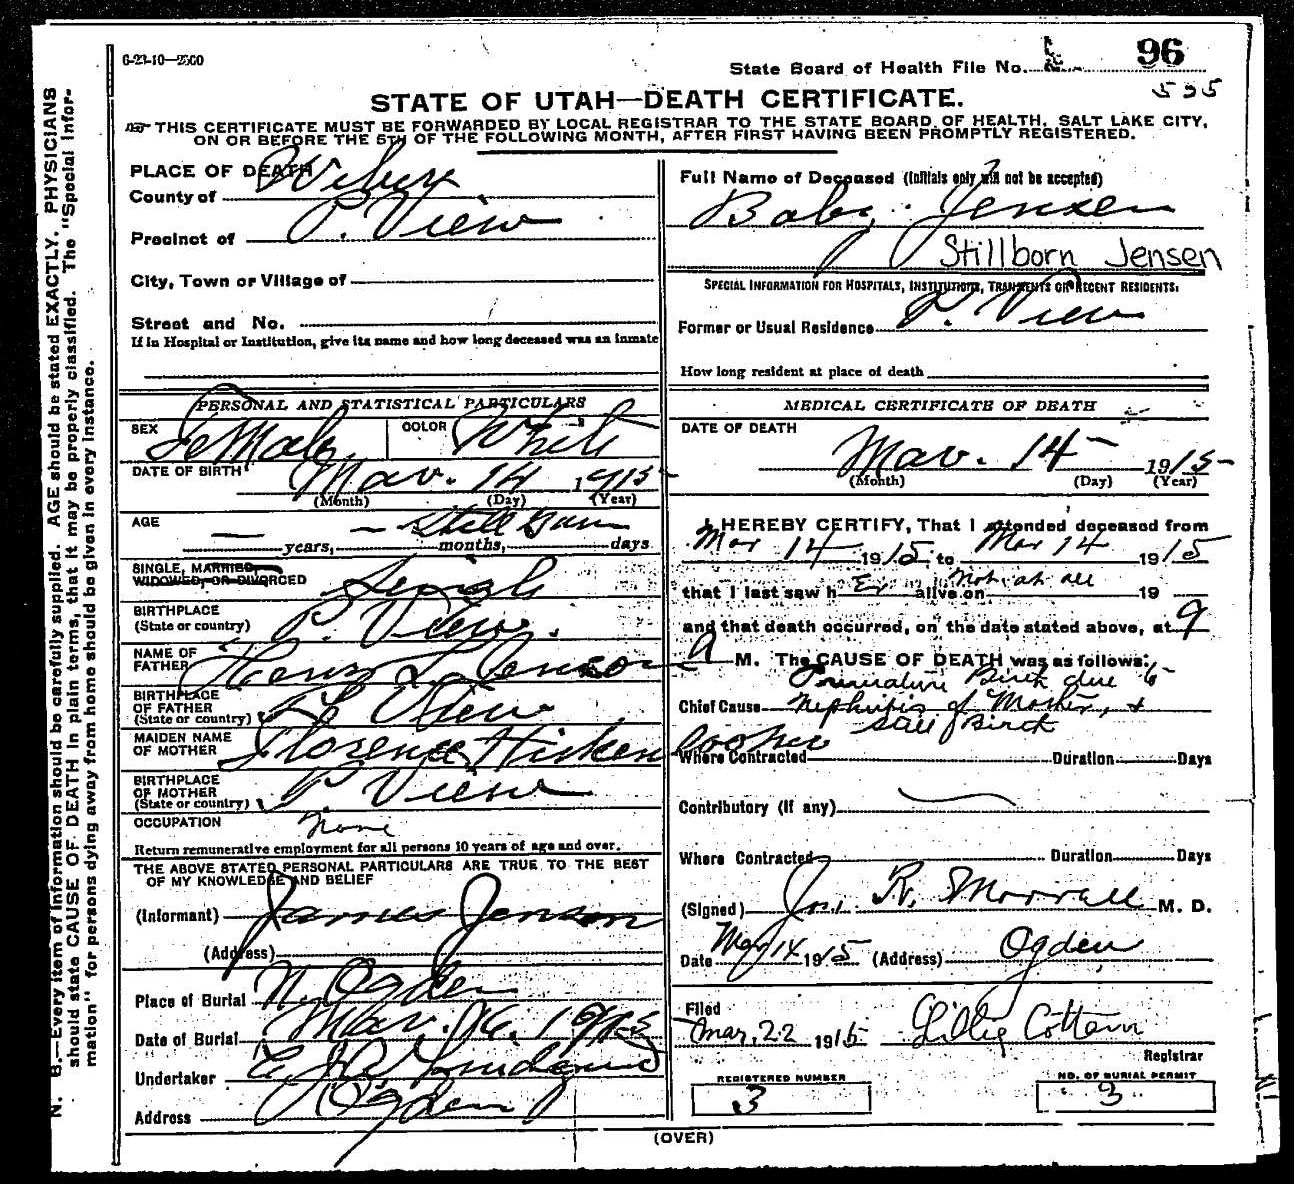 6-23-10—2500
State Board of Health File No. 96
535
STATE OF UTAH—DEATH CERTIFICATE.
THIS CERTIFICATE MUST BE FORWARDED BY LOCAL REGISTRAR TO THE STATE BOARD OF HEALTH, SALT LAKE CITY,
ON OR BEFORE THE 5TH OF THE FOLLOWING MONTH, AFTER FIRST HAVING BEEN PROMPTLY REGISTERED.
PLACE OF DEATH
County of Weber
Precinct of P. View
City, Town or Village of
Street and No.
If in Hospital or Institution, give its name and how long deceased was an inmate
PERSONAL AND STATISTICAL PARTICULARS
SEX Female COLOR White
DATE OF BIRTH Mar. 14 1915
(Month) (Day) (Year)
AGE Still Born
years, months, days
SINGLE, MARRIED
WIDOWED, OR DIVORCED Single
BIRTHPLACE
(State or country) P. View.
NAME OF
FATHER Henry L. Jenson
BIRTHPLACE
OF FATHER
(State or country) P. View
MAIDEN NAME
OF MOTHER Florence Hicken
BIRTHPLACE
OF MOTHER
(State or country) P View
OCCUPATION None
Return remunerative employment for all persons 10 years of age and over.
THE ABOVE STATED PERSONAL PARTICULARS ARE TRUE TO THE BEST
OF MY KNOWLEDGE AND BELIEF
(Informant) James Jenson
(Address)
Place of Burial N. Ogden
Date of Burial Mar. 16. 1915
Undertaker
Address Ogden
Full Name of Deceased (Initials only will not be accepted)
Baby Jensen
Stillborn Jensen
SPECIAL INFORMATION FOR HOSPITALS, INSTITUTIONS, TRANSIENTS OR RECENT RESIDENTS.
Former or Usual Residence P. View
How long resident at place of death
MEDICAL CERTIFICATE OF DEATH
DATE OF DEATH
Mar. 14 1915
(Month) (Day) (Year)
I HEREBY CERTIFY, That I attended deceased from
Mar 14 1915 to Mar 14 1915
that I last saw h Er alive on Not at all 19
and that death occurred, on the date stated above, at 9
A M. The CAUSE OF DEATH was as follows:
Premature Birth due to
Chief Cause Nephritis of Mother, &
Still Birth
Where Contracted Duration Days
Contributory (If any)
Where Contracted Duration Days
(Signed) Jos. R. Morrell M. D.
Date Mar 14 1915 (Address) Ogden
Filed
Mar. 22 1915 Lillie Cottam
Registrar
REGISTERED NUMBER NO. OF BURIAL PERMIT
3 3
(OVER)
N. B.—Every item of information should be carefully supplied. AGE should be stated EXACTLY. PHYSICIANS
should state CAUSE OF DEATH in plain terms, that it may be properly classified. The "Special Infor-
mation" for persons dying away from home should be given in every instance.